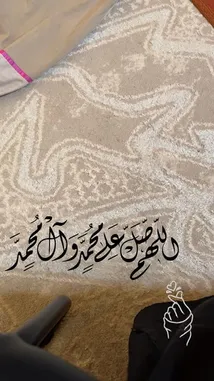 اللّٰهُمَّ صَلِّ عَلىٰ مُحَمَّدٍ وَآلِ مُحَمَّدٍ